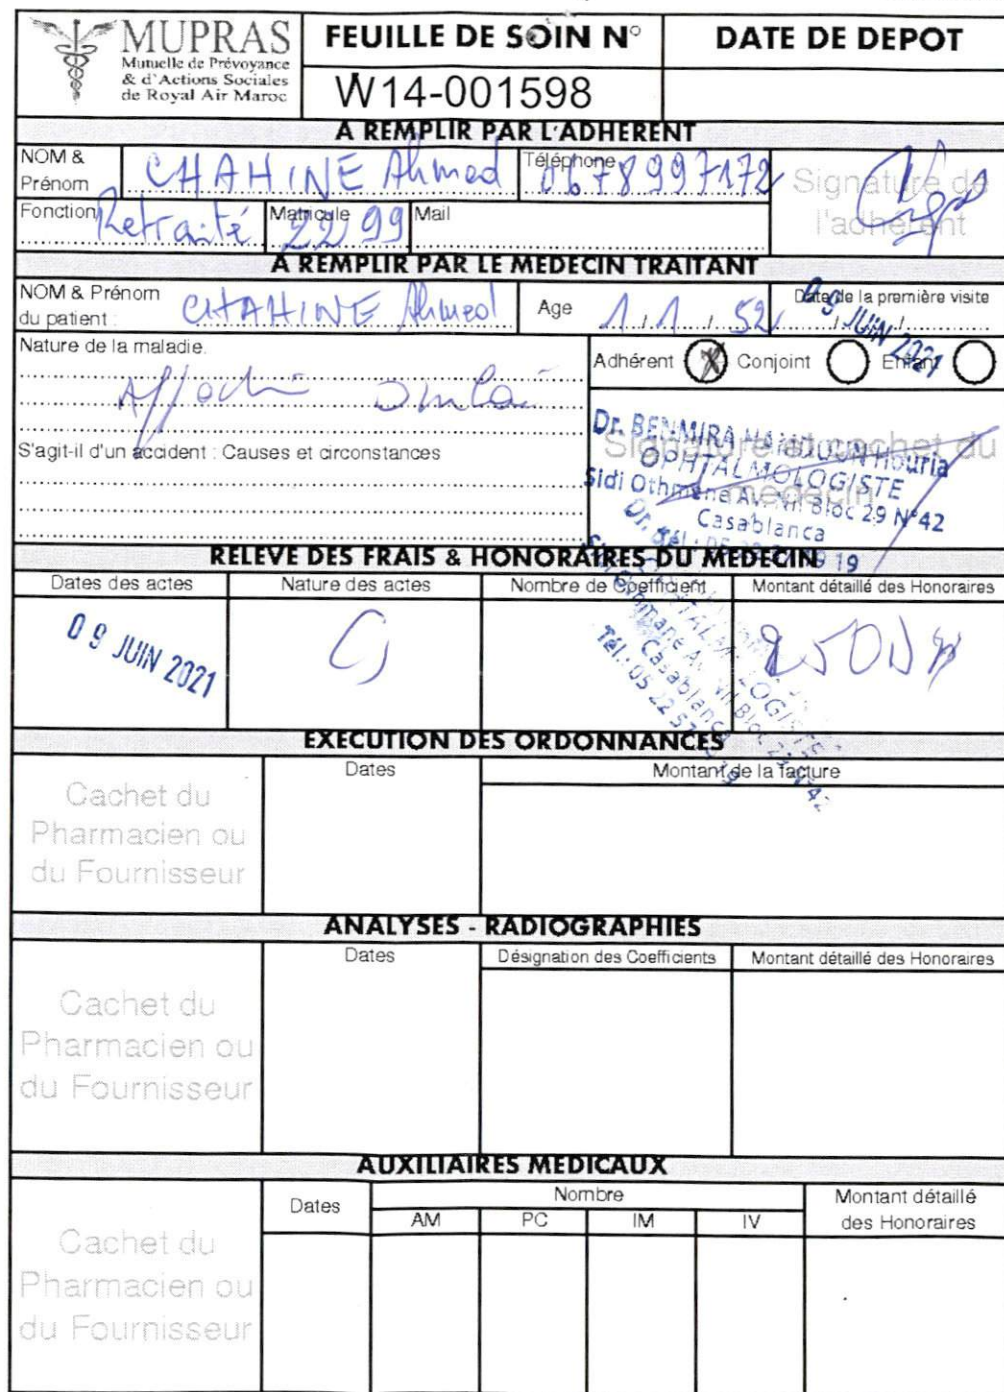 MUPRAS
Mutuelle de Prévoyance
& d'Actions Sociales
de Royal Air Maroc
FEUILLE DE SOIN N°
W14-001598
DATE DE DEPOT
A REMPLIR PAR L'ADHERENT
NOM & Prénom CHAHINE Ahmed Téléphone 0678997172
Signature de l'adhérent
Fonction Retraité Matricule 2299 Mail
A REMPLIR PAR LE MEDECIN TRAITANT
NOM & Prénom du patient : CHAHINE Ahmed Age 1/1/52 Date de la première visite
09 JUIN 2021
Nature de la maladie.
Adhérent X Conjoint Enfant
S'agit-il d'un accident : Causes et circonstances
Signature et cachet du médecin
Dr. BENMIRA HAMDOUN Houria
OPHTALMOLOGISTE
Sidi Othmane Av. Nil Bloc 29 N°42
Casablanca
RELEVE DES FRAIS & HONORAIRES DU MEDECIN
Dates des actes Nature des actes Nombre de Coefficient Montant détaillé des Honoraires
09 JUIN 2021
EXECUTION DES ORDONNANCES
Cachet du Pharmacien ou du Fournisseur
Dates Montant de la facture
ANALYSES - RADIOGRAPHIES
Cachet du Pharmacien ou du Fournisseur
Dates Désignation des Coefficients Montant détaillé des Honoraires
AUXILIAIRES MEDICAUX
Cachet du Pharmacien ou du Fournisseur
Dates Nombre Montant détaillé des Honoraires
AM PC IM IV